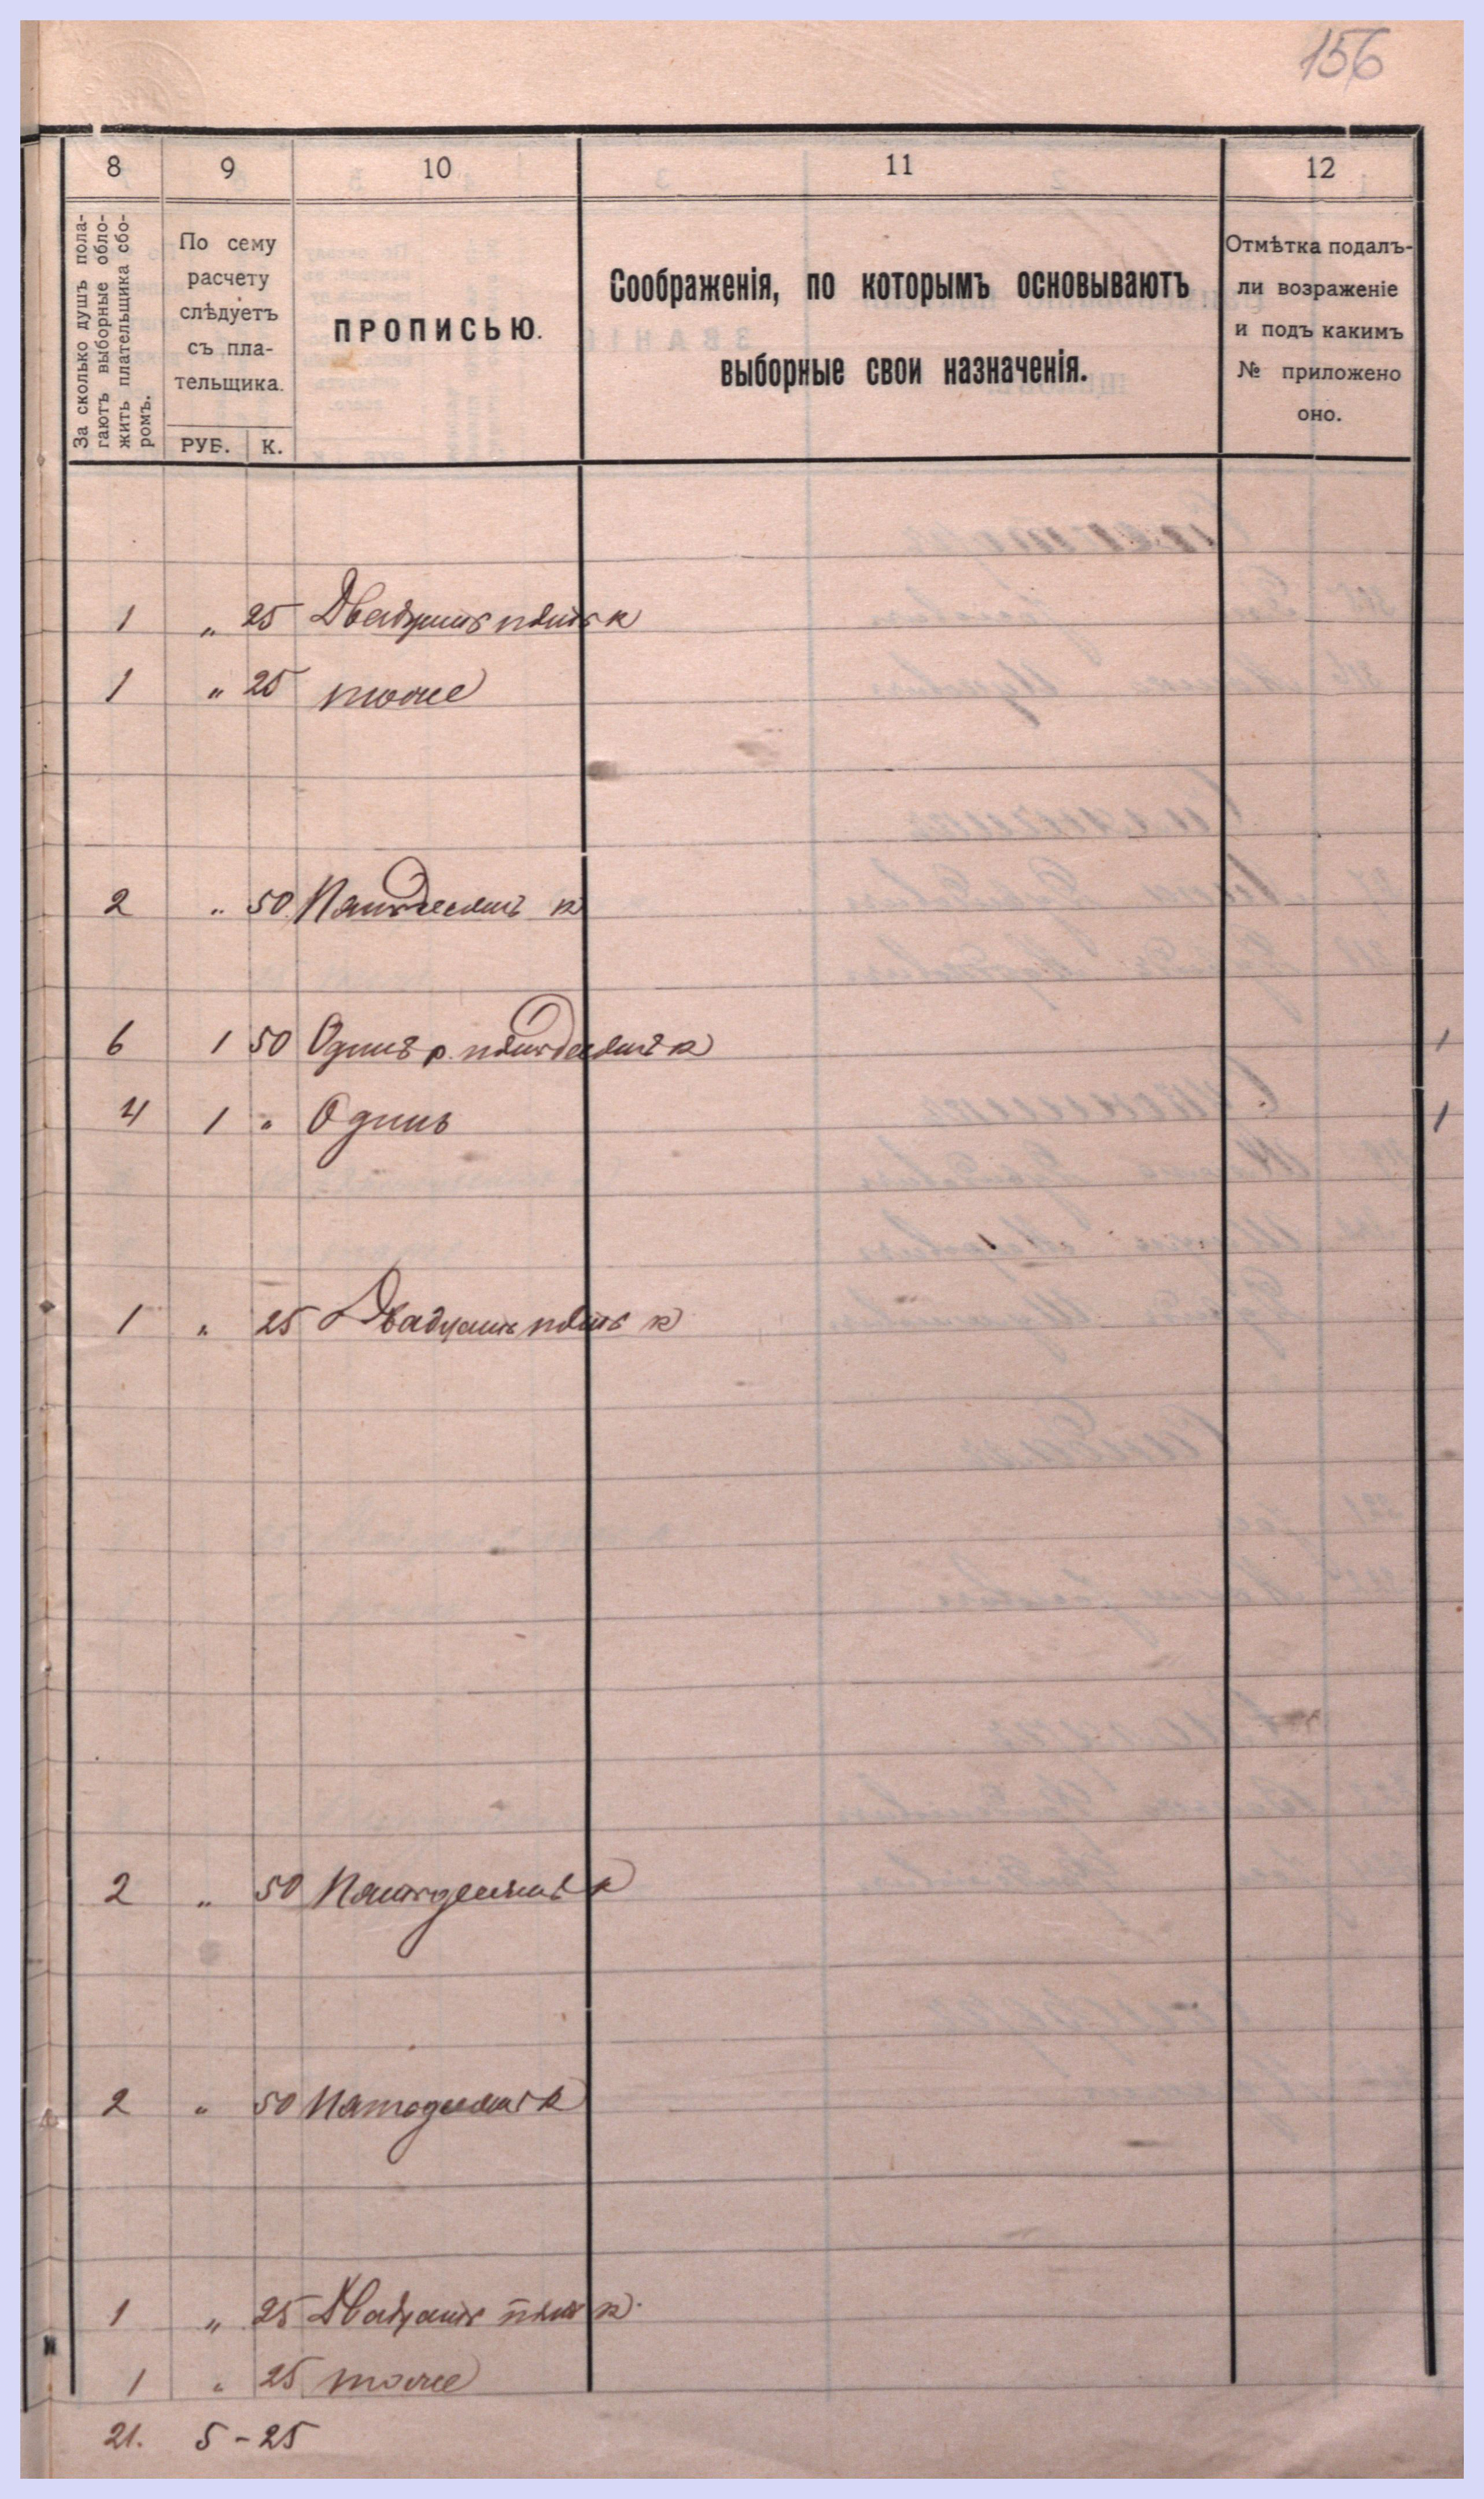 156
8 9 10 11 12
За сколько душъ пола-
гаютъ выборные обло-
жить плательщика сбо-
ромъ.
По сему
расчету
слѣдуетъ
съ пла-
тельщика.
РУБ. К.
ПРОПИСЬЮ.
Соображенія, по которымъ основываютъ
выборные свои назначенія.
Отмѣтка подалъ-
ли возраженіе
и подъ какимъ
№ приложено
оно.
1 " 25 Двадцать пять к
1 " 25 тоже
2 " 50 Пятьдесятъ к
6 1 50 Одинъ р. пятьдесятъ к 1
4 1 " Одинъ 1
1 " 25 Двадцать пять к
2 " 50 Пятьдесятъ к
2 " 50 Пятьдесятъ к
1 " 25 Двадцать пять к.
1 " 25 тоже
21. 5 - 25